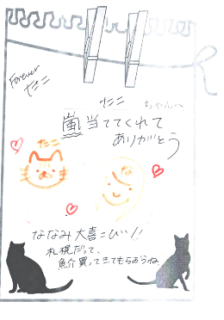 Forever
たこ
たこ ちゃんへ
嵐当ててくれて
ありがとう
たこ
ななみ大喜こび!!
札幌だって、
魚介買ってきてもらおうね